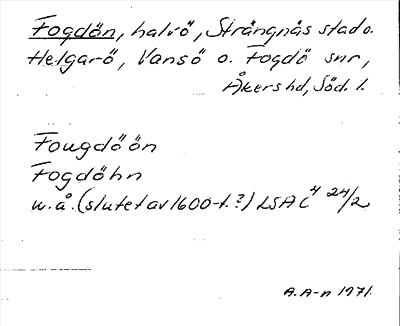 Fogdön, halvö, Strängnäs stad o.
Helgarö, Vansö o. Fogdö snr,
Åkers hd, Söd. l.
Fougdöön
Fogdöhn
u.å. (slutet av 1600-t.?) LSA C 4 24/2
A.A-n 1971.